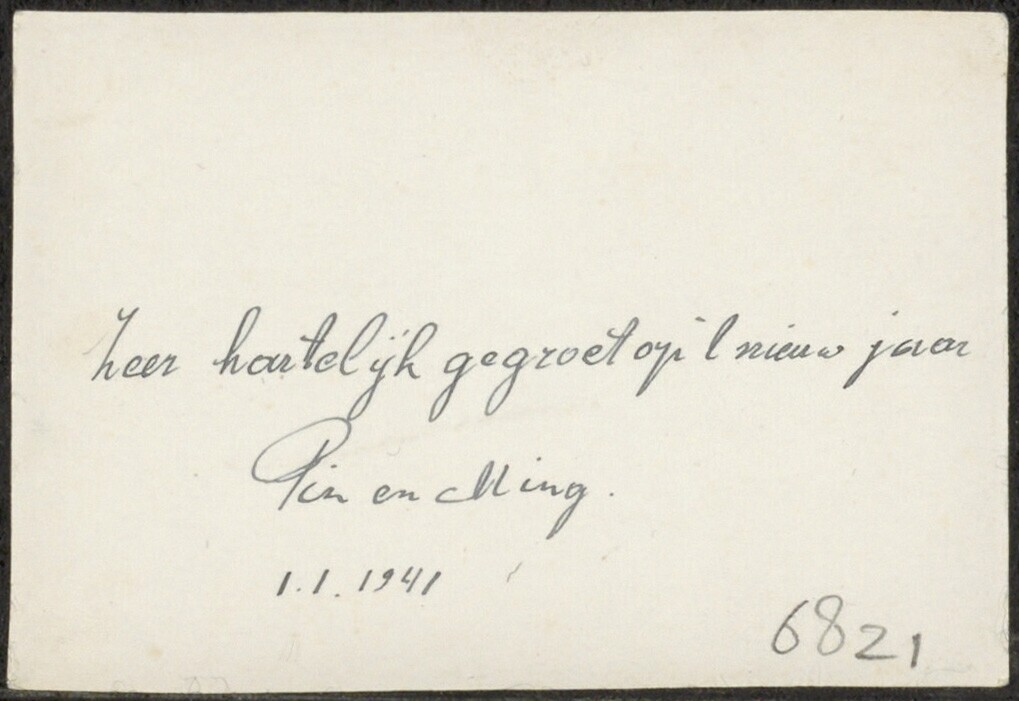 Zeer hartelijk gegroet op 't nieuw jaar
Pin en Ming.
1.1.1941
6821